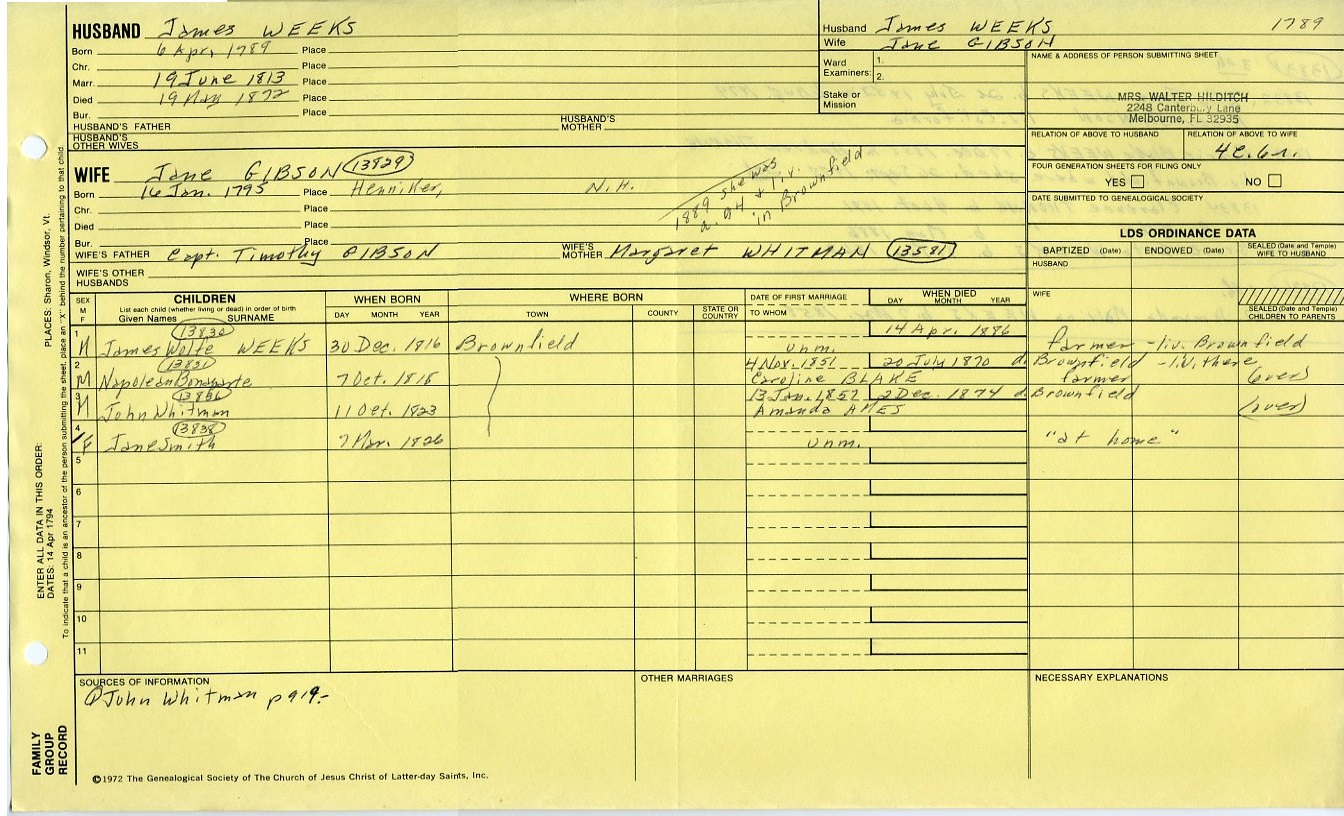 HUSBAND James WEEKS
Born 6 Apr, 1789 Place
Chr. Place
Marr. 19 June 1813 Place
Died 19 May 1872 Place
Bur. Place
HUSBAND'S FATHER
HUSBAND'S MOTHER
HUSBAND'S OTHER WIVES
Husband James WEEKS 1789
Wife Jane GIBSON
Ward Examiners: 1.
2.
Stake or Mission
NAME & ADDRESS OF PERSON SUBMITTING SHEET
MRS. WALTER HILDITCH
2248 Canterbury Lane
Melbourne, FL 32935
RELATION OF ABOVE TO HUSBAND
RELATION OF ABOVE TO WIFE
4C.6r.
FOUR GENERATION SHEETS FOR FILING ONLY
YES NO
DATE SUBMITTED TO GENEALOGICAL SOCIETY
WIFE Jane GIBSON 13829
Born 16 Jan. 1795 Place Henniker, N.H.
Chr. Place
Died Place
Bur. Place
1889 she was
a. 94 & liv.
in Brownfield
WIFE'S FATHER Capt. Timothy GIBSON
WIFE'S MOTHER Margaret WHITMAN 13581
WIFE'S OTHER HUSBANDS
LDS ORDINANCE DATA
BAPTIZED (Date) ENDOWED (Date) SEALED (Date and Temple) WIFE TO HUSBAND
HUSBAND
WIFE
SEALED (Date and Temple) CHILDREN TO PARENTS
SEX M F
CHILDREN
List each child (whether living or dead) in order of birth
Given Names SURNAME
WHEN BORN
DAY MONTH YEAR
WHERE BORN
TOWN COUNTY STATE OR COUNTRY
DATE OF FIRST MARRIAGE
TO WHOM
WHEN DIED
DAY MONTH YEAR
1 M 13830 James Wolfe WEEKS 30 Dec. 1816 Brownfield unm. 14 Apr. 1886 farmer - liv. Brownfield
2 M 13831 Napoleon Bonaparte 7 Oct. 1818 4 Nov. 1851 Caroline BLAKE 20 July 1870 d. Brownfield - liv. there farmer (over)
3 M 13836 John Whitman 11 Oct. 1823 13 Jan. 1857 Amanda AMES 2 Dec. 1874 d. Brownfield (over)
4 F 13838 Jane Smith 7 Mar. 1826 unm. "at home"
5
6
7
8
9
10
11
SOURCES OF INFORMATION
John Whitman p 919-
OTHER MARRIAGES
NECESSARY EXPLANATIONS
©1972 The Genealogical Society of The Church of Jesus Christ of Latter-day Saints, Inc.
FAMILY GROUP RECORD
ENTER ALL DATA IN THIS ORDER:
DATES: 14 Apr 1794
PLACES: Sharon, Windsor, Vt.
To indicate that a child is an ancestor of the person submitting the sheet, place an "X" behind the number pertaining to that child.